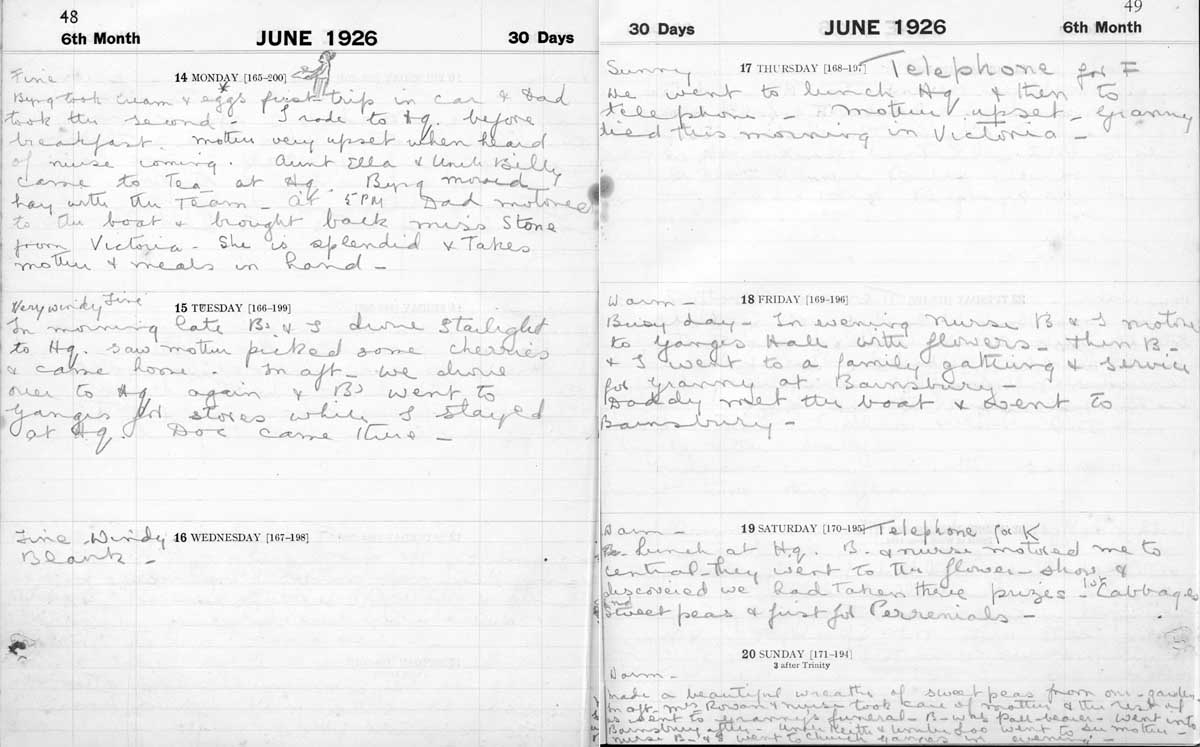 48
6th Month JUNE 1926 30 Days
14 MONDAY [165-200]
Fine
Byng took cream & eggs first trip in car & Dad
took the second - I rode to Hq. before
breakfast. Mother very upset when heard
of nurse coming. Aunt Ella & Uncle Billy
came to Tea at Hq. Byng mowed
hay with the Team - at 5 PM Dad motored
to the boat & brought back Miss Stone
from Victoria - She is splendid & Takes
mother & meals in hand -
15 TUESDAY [166-199]
Very windy Fine
In morning late B. & I drove Starlight
to Hq. saw mother picked some cherries
& came home. In aft - we drove
over to Hq again & B. went to
Ganges for stores while I stayed
at Hq. Doc came there -
16 WEDNESDAY [167-198]
Fine Windy
Blank -
49
30 Days JUNE 1926 6th Month
17 THURSDAY [168-197] Telephone for F
Sunny
We went to lunch Hq & then to
telephone - Mother upset - Granny
died this morning in Victoria -
18 FRIDAY [169-196]
Warm -
Busy day - In evening Nurse B & I motored
to Ganges Hall with flowers - then B -
& I went to a family gathering & service
for Granny at Barnsbury -
Daddy met the boat & went to
Barnsbury -
19 SATURDAY [170-195] Telephone for K
Warm -
Lunch at Hq. B. & nurse motored me to
central - they went to the flower - show &
discovered we had Taken three prizes - 1st Cabbages
2nd Sweet peas & first for Perrenials -
20 SUNDAY [171-194]
3 after Trinity
Warm -
Made a beautiful wreath of sweet peas from our - garden.
In aft - Mrs Rowan & nurse took care of mother & the rest of
us went to Granny's funeral - B - was Pall-bearer - went into
Barnsbury after - Uncle Keith & went to see mother -
nurse B - & I went to Church Ganges in evening -